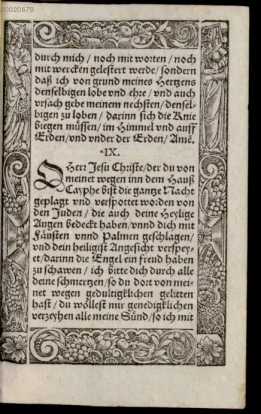 00020679
durch mich / noch mit worten / noch
mit wercken gelestert werde / sondern
daß ich von grund meines Hertzens
denselbigen lobe vnd ehre / vnd auch
vrsach gebe meinem nechsten / densel-
bigen zu loben / darinn sich die Knie
biegen müssen / im Himmel vnd auff
Erden / vnd vnder der Erden / Amē.
IX.
O Herr Jesu Christe / der du von
meinet wegen inn dem Hauß
Cayphe bist die gantze Nacht
geplagt vnd verspottet worden von
den Juden / die auch deine Heylige
Augen bedeckt haben / vnnd dich mit
Fäusten vnnd Palmen geschlagen /
vnd dein heiligist Angesicht verspey-
et / darinn die Engel ein freud haben
zu schawen / ich bitte dich durch alle
deine schmertzen / so du dort von mei-
net wegen gedultigklichen gelitten
hast / du wöllest mir genedigklichen
verzeyhen alle meine Sünd / so ich mit